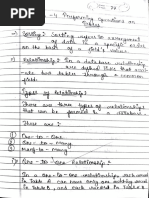 - 11 Performing operations on
Tables
→) Sorting: Sorting refers to arrangement
of data in a specific order
on the basis of field's values.
→) Relationship: In a database relationship
two tables through a common
field.
Types of Relationship:
There are three types of relationships
that can be formed in a database.
There are :-
① One - to - One
② One - to - many
③ Many-to-many
① One - to - One Relationship :
In a one-to-one relationship, each record
in Table A can have only one matching record
in Table B, and each record in Table B can